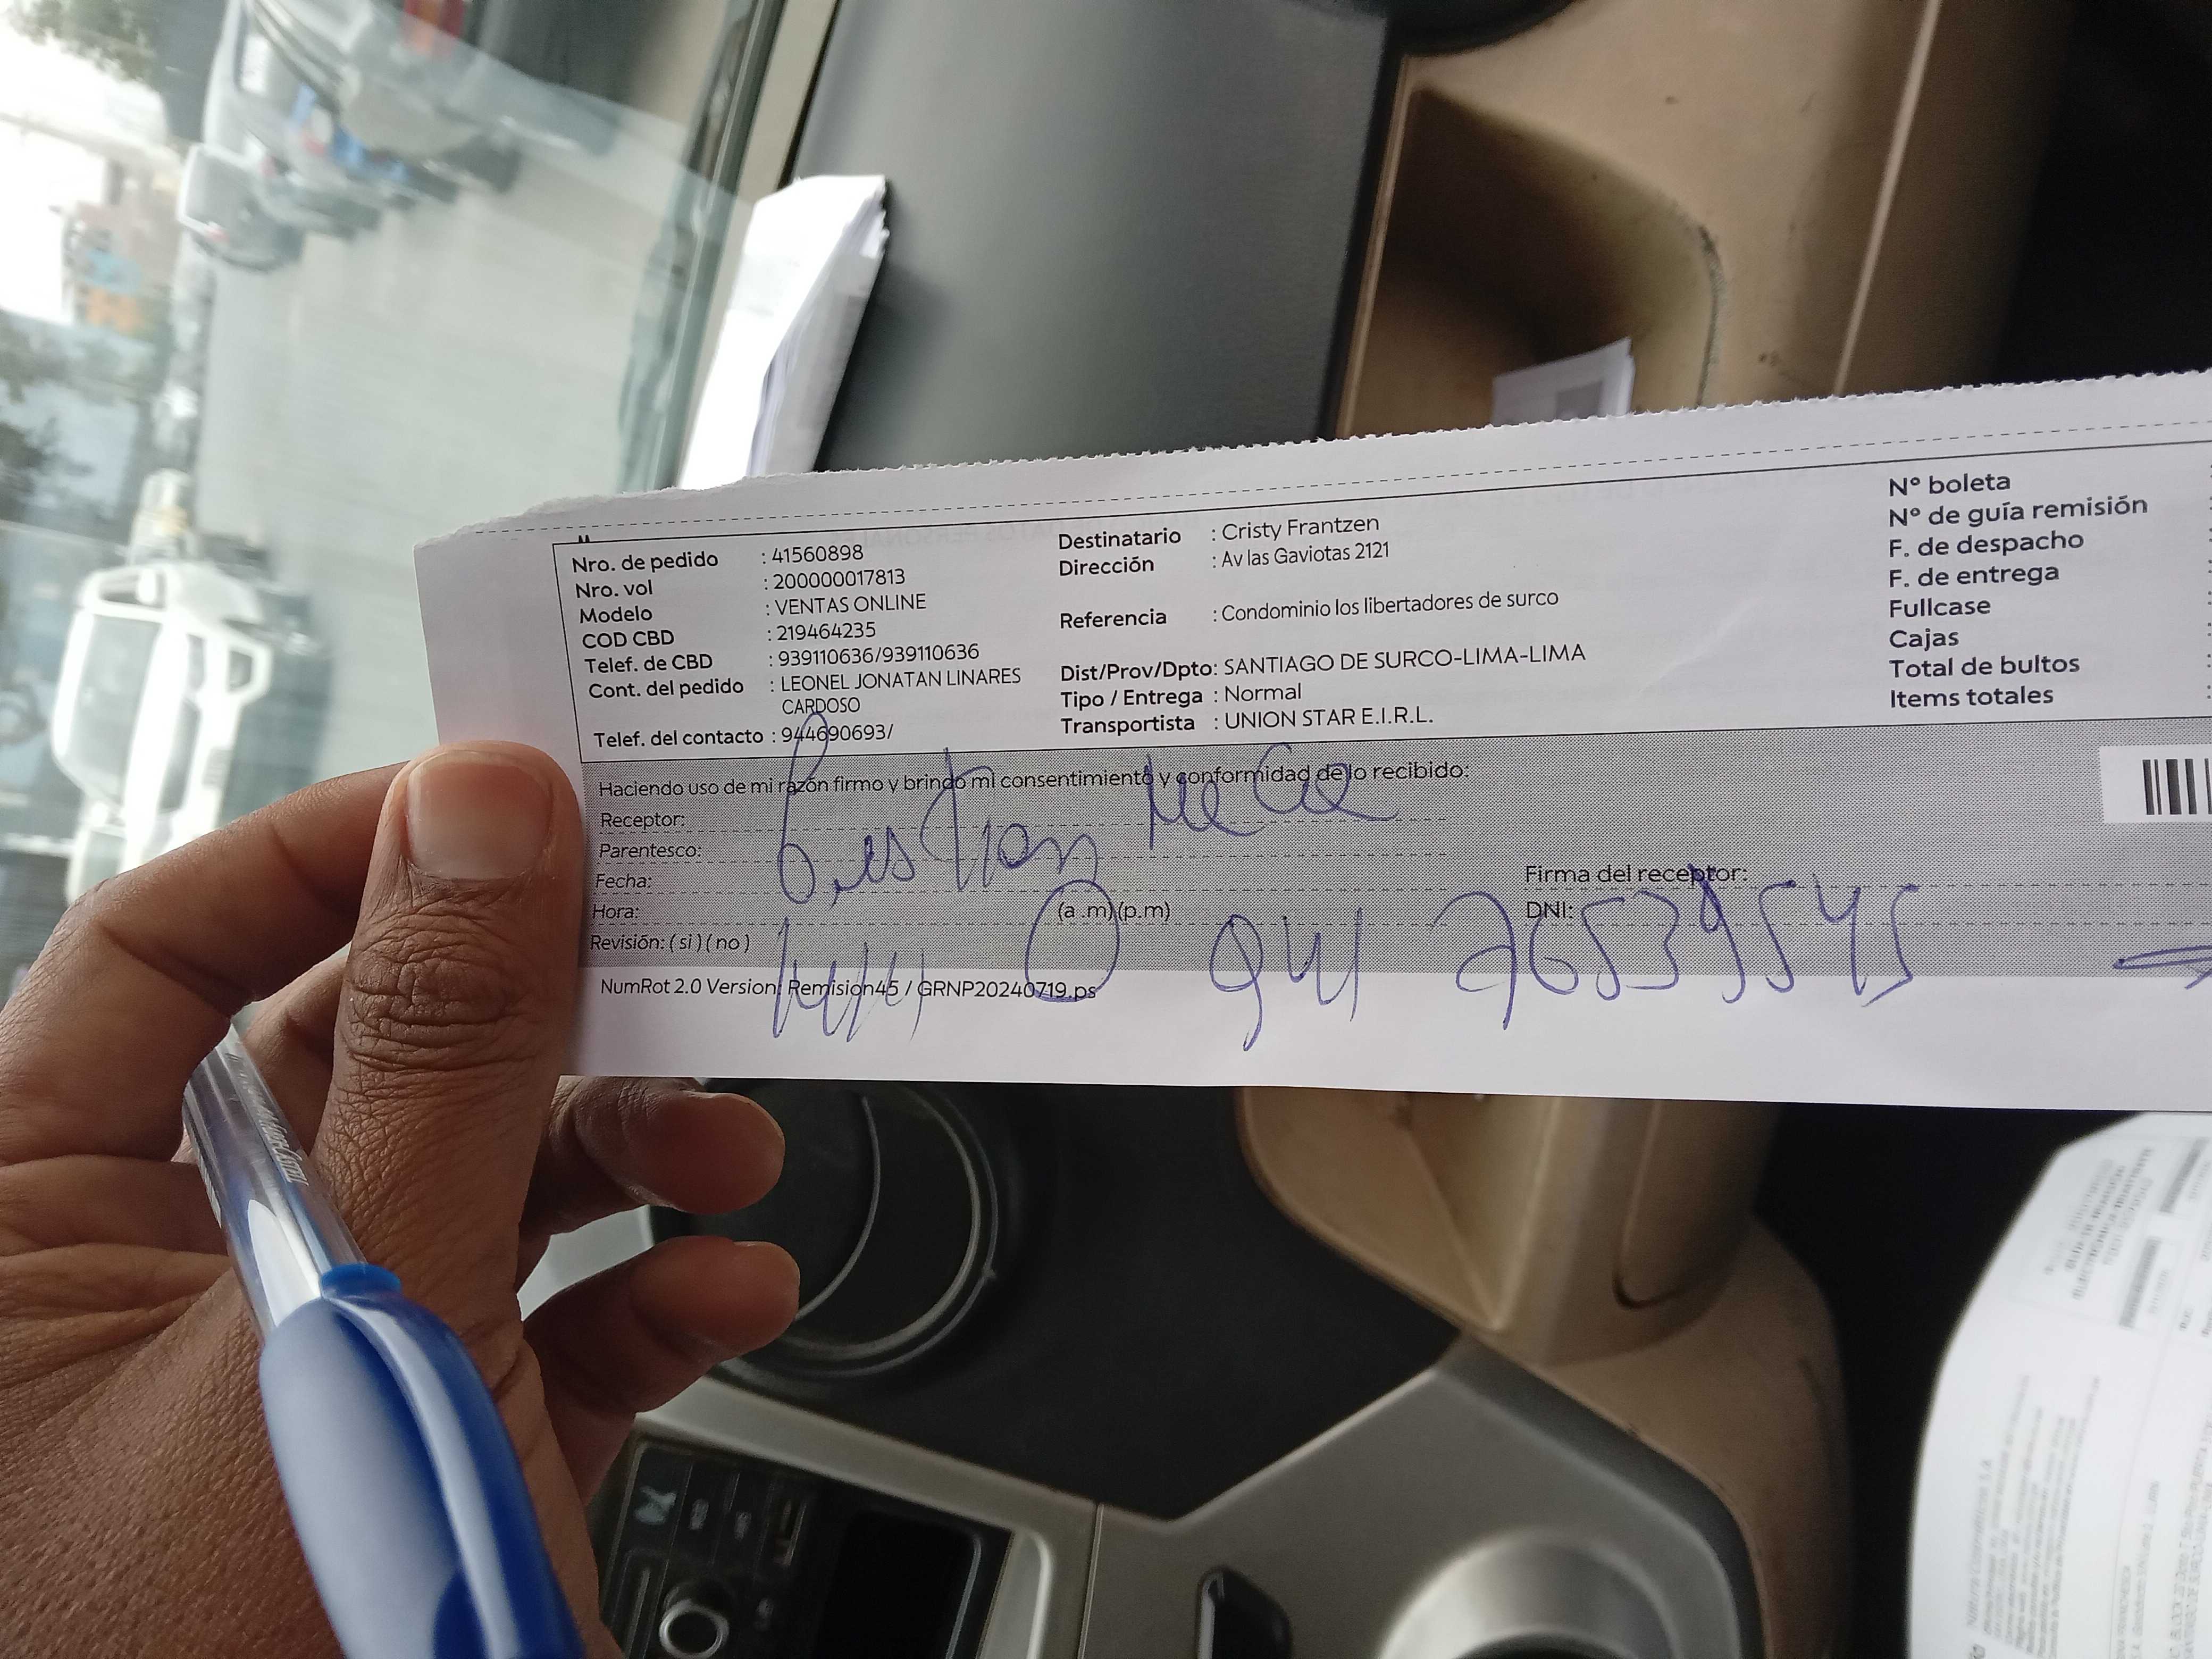 Nro. de pedido : 41560898
Nro. vol : 200000017813
Modelo : VENTAS ONLINE
COD CBD : 219464235
Telef. de CBD : 939110636/939110636
Cont. del pedido : LEONEL JONATAN LINARES
CARDOSO
Telef. del contacto : 944690693/
Destinatario : Cristy Frantzen
Dirección : Av las Gaviotas 2121
Referencia : Condominio los libertadores de surco
Dist/Prov/Dpto: SANTIAGO DE SURCO-LIMA-LIMA
Tipo / Entrega : Normal
Transportista : UNION STAR E.I.R.L.
Nº boleta
Nº de guía remisión
F. de despacho
F. de entrega
Fullcase
Cajas
Total de bultos
Items totales
Haciendo uso de mi razón firmo y brindo mi consentimiento y conformidad de lo recibido:
Receptor:
Parentesco:
Fecha:
Hora: (a .m)(p.m)
Revisión: ( si ) ( no )
Firma del receptor:
DNI:
76539545
NumRot 2.0 Version: Remision45 / GRNP20240719.ps